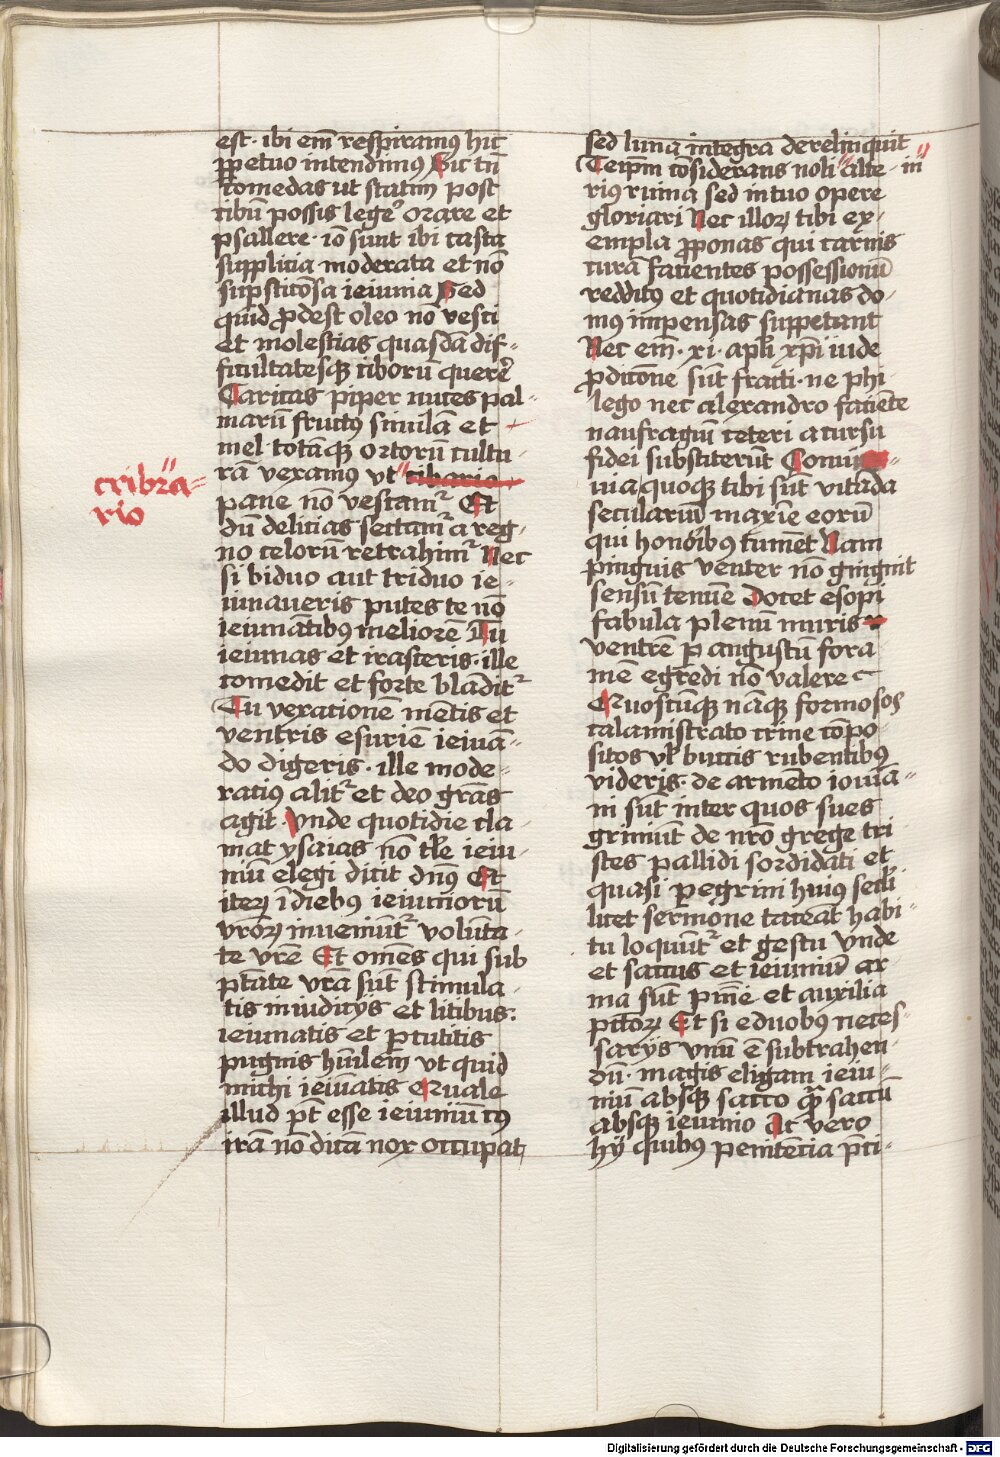 est · ibi em̄ respiramꝰ hic
ꝑpetuo intendimꝰ Sic tn̄
comedas ut statim post
cibū possis lege᷒ orare et
psallere · iō sunt ibi casta
supplicia moderata et nō
suꝑsticōsa ieiunia Sed
quid ꝓdest oleo nō vesci
et molestias quasdā dif-
ficultatesqꝫ ciborū quere᷒
Caritas piper nuces pal-
marū fructꝰ similā et
mel · totāqꝫ ortorū cultu-
rā vexamꝰ vt cibario
cribra-
rio
pane nō vescam᷑ Et
dū delicias sectam᷑ a reg-
no celorū retrahim᷑ Nec
si biduo aut triduo ie-
iunaueris putes te nō
ieiunātibꝰ meliorē Tu
ieiunas et irasceris · ille
comedit et forte blādit᷑
Tu vexationē mētis et
ventris esuriē ieiunā-
do digeris · ille mode-
ratius alit᷑ et deo grās
agit · Vnde quotidie cla-
mat ysaias nō tale ieiu-
niū elegi dicit dn̄s Et
iteꝝ ī diebus ieiuniorū
vroꝝ inueniūt᷑ volūta-
te vrē Et omēs qui sub
ptāte vrā sūt stimula-
tis in iudicijs et litibus:
ieiunatis et ꝑcutitis
pugnis hūilem vt quid
michi ieiūatis Quale
illud pt̄ esse ieiuniū cꝰ
irā nō dicā nox occupat
sed luna integra derelinquit
Teip̄m cōsiderans noli alte- in
rius ruina sed in tuo opere
gloriari Nec illoꝝ tibi ex-
empla ꝓponas qui carnis
curā facientes possessionū
redditꝰ et quotidianas do-
mꝰ impensas supputant
Nec em̄ · xi · apl̄i xp̄i iude
ꝓdicōne sūt fracti · ne phi-
lego nec alexandro faciēte
naufragiū ceteri a cursu
fidei substiterūt Conui
uia quoqꝫ tibi sūt vitāda
seculariū maxīe eorū
qui honoribꝰ tumēt Nam
pinguis venter nō gingnit
sensū tenuē Docet esopi
fabula plenū muris
ventrē ꝑ angustū fora-
mē egredi nō valere
Quoscūqꝫ nāqꝫ formosos
calamistrato crine cōpo-
sitos vl̄ buccis rubentibꝰ
videris · de armēto iouiā-
ni sūt inter quos sues
grūniūt de nr̄o grege tri-
stes pallidi sordidati et
quasi ꝑegrini huius secl̄i
licet sermone taceāt habi-
tu loquūt᷑ et gestu Vnde
et saccus et ieiuniū ar-
ma sūt pnīe et auxilia
pctōꝝ Et si e duobꝰ neces-
sarijs vnū ē subtrahen-
dū · magis eligam ieiu-
niū absqꝫ sacco qͣ̄ saccū
absqꝫ ieiunio At vero
hij quibꝰ penitēcia p̄ci-
Digitalisierung gefördert durch die Deutsche Forschungsgemeinschaft - DFG